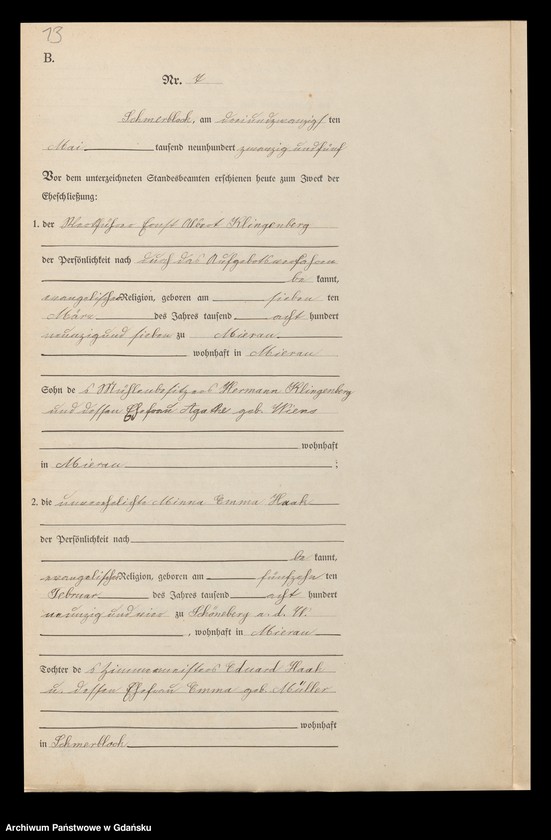 13
B.
Nr. 4
Schmerblock, am dreiundzwanzigsten
Mai tausend neunhundert zwanzig und fünf
Vor dem unterzeichneten Standesbeamten erschienen heute zum Zweck der
Eheschließung:
1. der Ernst Albert Klingenberg
der Persönlichkeit nach durch das Aufgebotsverfahren
be kannt,
evangelischer Religion, geboren am sieben ten
März des Jahres tausend acht hundert
neunzig und sieben zu Mierau
wohnhaft in Mierau
Sohn des Mühlenbesitzers Hermann Klingenberg
und dessen Ehefrau Agathe geb. Wiens
wohnhaft
in Mierau ;
2. die unverehelichte Minna Emma Haak
der Persönlichkeit nach
be kannt,
evangelischer Religion, geboren am fünfzehn ten
Februar des Jahres tausend acht hundert
neunzig und vier zu Schöneberg a. d. W.
, wohnhaft in Mierau
Tochter des Zimmermeisters Eduard Haak
u. dessen Ehefrau Emma geb. Müller
wohnhaft
in Schmerblock
Archiwum Państwowe w Gdańsku